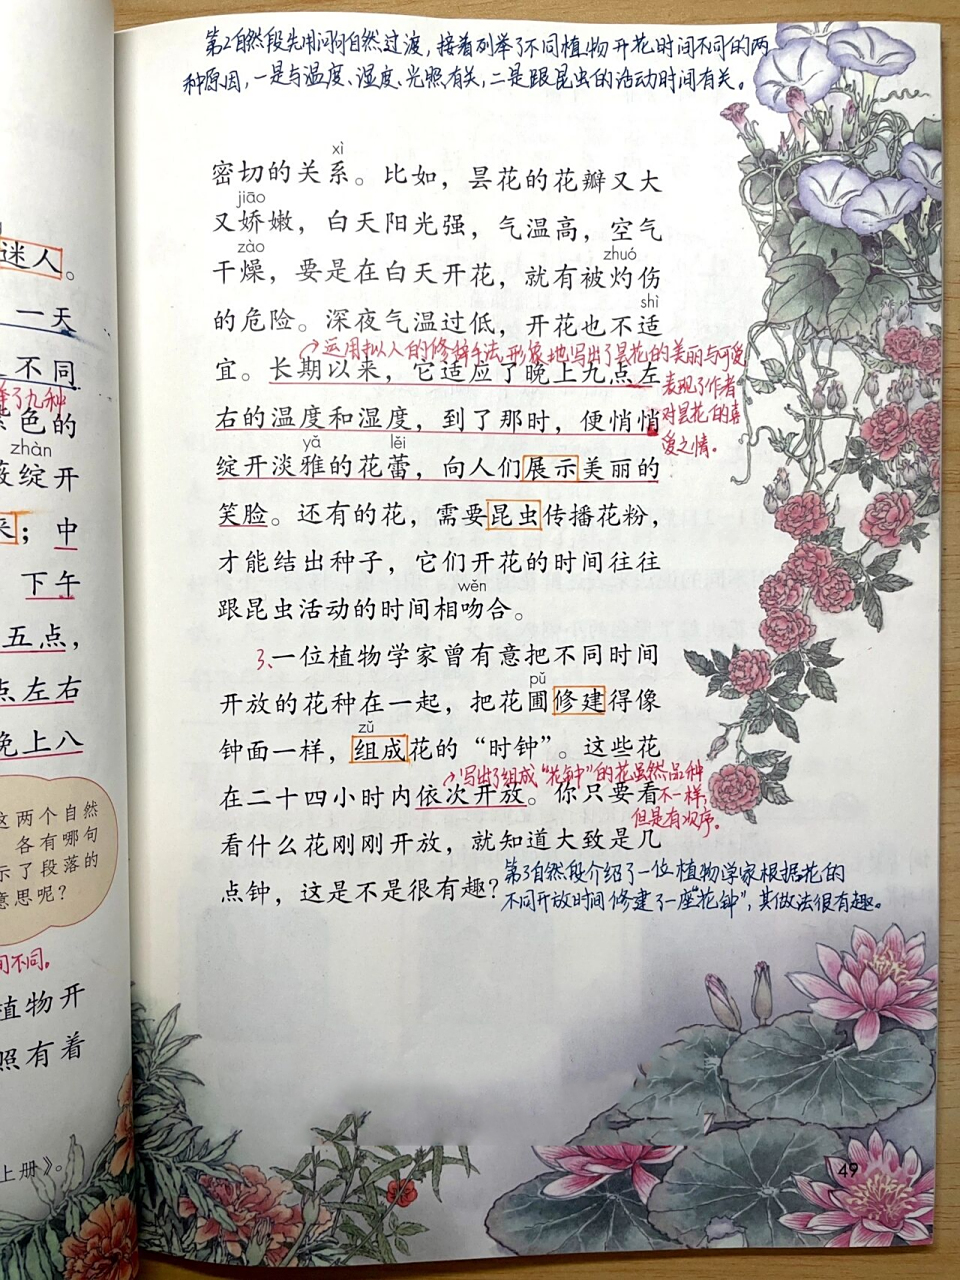 迷人。
一天
不同
色的
zhàn
薇绽开
来；中
下午
五点，
点左右
晚上八
这两个自然
各有哪句
示了段落的
意思呢？
间不同。
植物开
照有着
上册》。
第2自然段先用问句自然过渡，接着列举了不同植物开花时间不同的两
种原因，一是与温度、湿度、光照有关，二是跟昆虫的活动时间有关。
xì
密切的关系。比如，昙花的花瓣又大
jiāo
又娇嫩，白天阳光强，气温高，空气
zào zhuó
干燥，要是在白天开花，就有被灼伤
shì
的危险。深夜气温过低，开花也不适
运用拟人的修辞手法，形象地写出了昙花的美丽与可爱，
宜。长期以来，它适应了晚上九点左
表现了作者
右的温度和湿度，到了那时，便悄悄
对昙花的喜
爱之情。
yǎ lěi
绽开淡雅的花蕾，向人们展示美丽的
笑脸。还有的花，需要昆虫传播花粉，
才能结出种子，它们开花的时间往往
wěn
跟昆虫活动的时间相吻合。
3、一位植物学家曾有意把不同时间
pǔ
开放的花种在一起，把花圃修建得像
zǔ
钟面一样，组成花的“时钟”。这些花
写出了组成“花钟”的花虽然品种
在二十四小时内依次开放。你只要看
不一样，
但是有次序。
看什么花刚刚开放，就知道大致是几
点钟，这是不是很有趣？
第3自然段介绍了一位植物学家根据花的
不同开放时间修建了一座“花钟”，其做法很有趣。
49